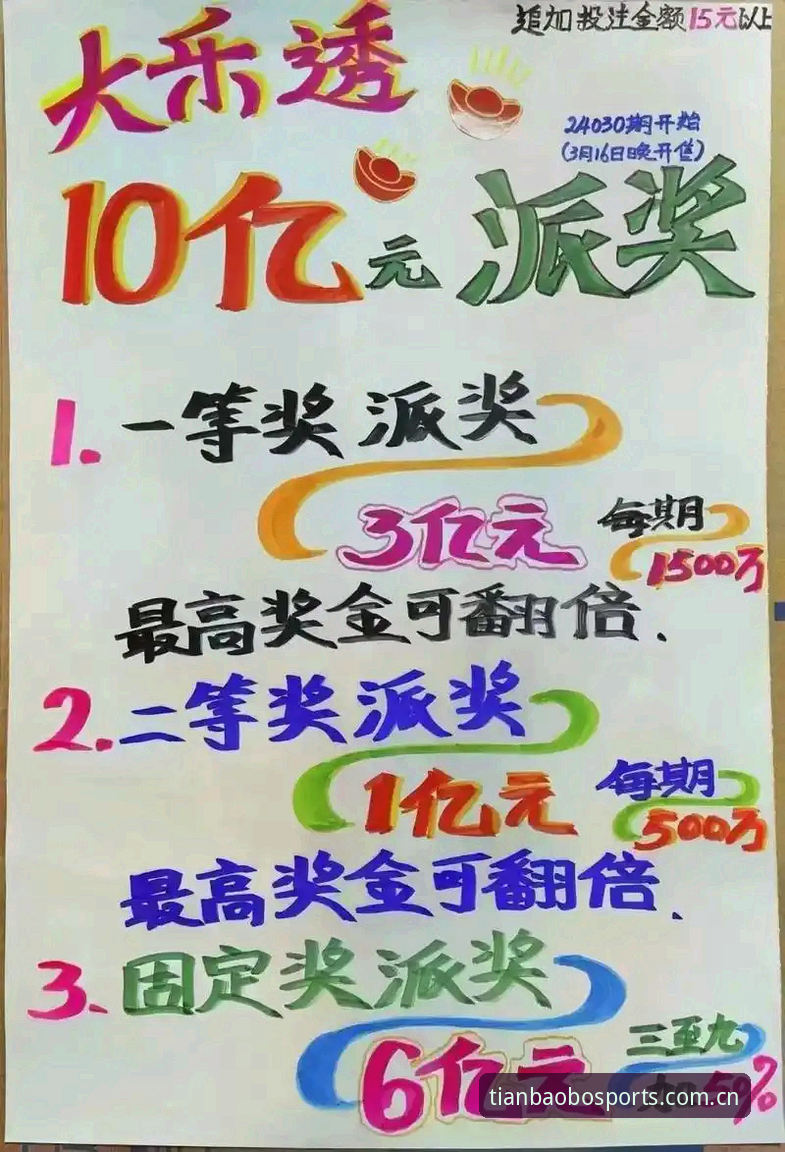 追加投注金额15元以上
大乐透
24030期开始
(3月16日晚开售)
10亿元派奖
1.一等奖派奖
3亿元 每期
1500万
最高奖金可翻倍.
2.二等奖派奖
1亿元 每期
500万
最高奖金可翻倍.
3.固定奖派奖
6亿元 三至九
tianbaobosports.com.cn